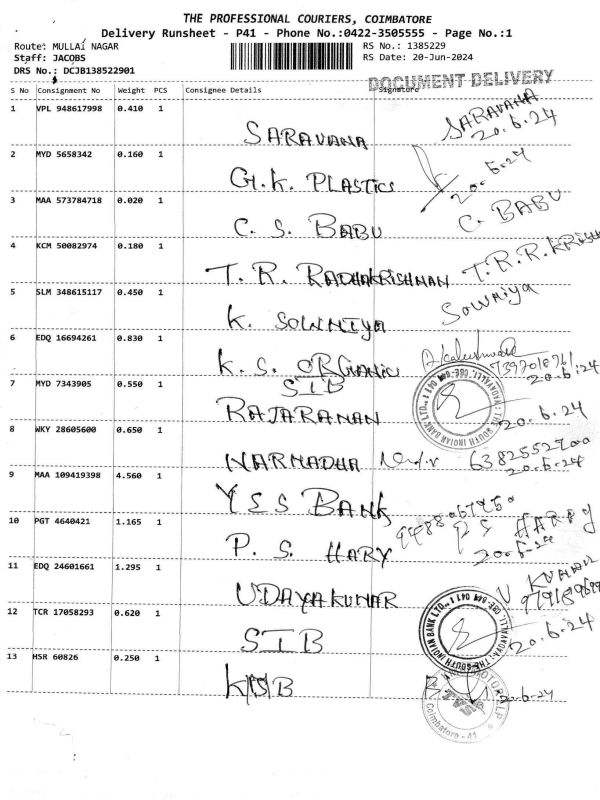 THE PROFESSIONAL COURIERS, COIMBATORE
Delivery Runsheet - P41 - Phone No.:0422-3505555 - Page No.:1
Route: MULLAI NAGAR RS No.: 1385229
Staff: JACOBS RS Date: 20-Jun-2024
DRS No.: DCJB138522901
DOCUMENT DELIVERY
S No Consignment No Weight PCS Consignee Details Signature
1 VPL 948617998 0.410 1
SARAVANA SARAVANA
20.6.24
2 MYD 5658342 0.160 1
G.K. PLASTICS 20.6.24
3 MAA 573784718 0.020 1
C. S. BABU C. BABU
4 KCM 50082974 0.180 1
T. R. RADHAKRISHNAN T.R.R.KRISH
5 SLM 348615117 0.450 1
K. SOWNIYA Sowniya
6 EDQ 16694261 0.830 1
K. S. ORGANIC 20.6.24
SIB
7 MYD 7343905 0.550 1
RAJARAMAN 20.6.24
THE SOUTH INDIAN BANK LTD.
8 WKY 28605600 0.650 1
NARMADHA 20.6.24
9 MAA 109419398 4.560 1
YES BANK
10 PGT 4640421 1.165 1
P. S. HARY P S HARRY
20.6.24
11 EDQ 24601661 1.295 1
UDAYAKUMAR
12 TCR 17058293 0.620 1
SIB 20.6.24
THE SOUTH INDIAN BANK LTD.
13 HSR 60826 0.250 1
20.6.24
TVS
Coimbatore - 41